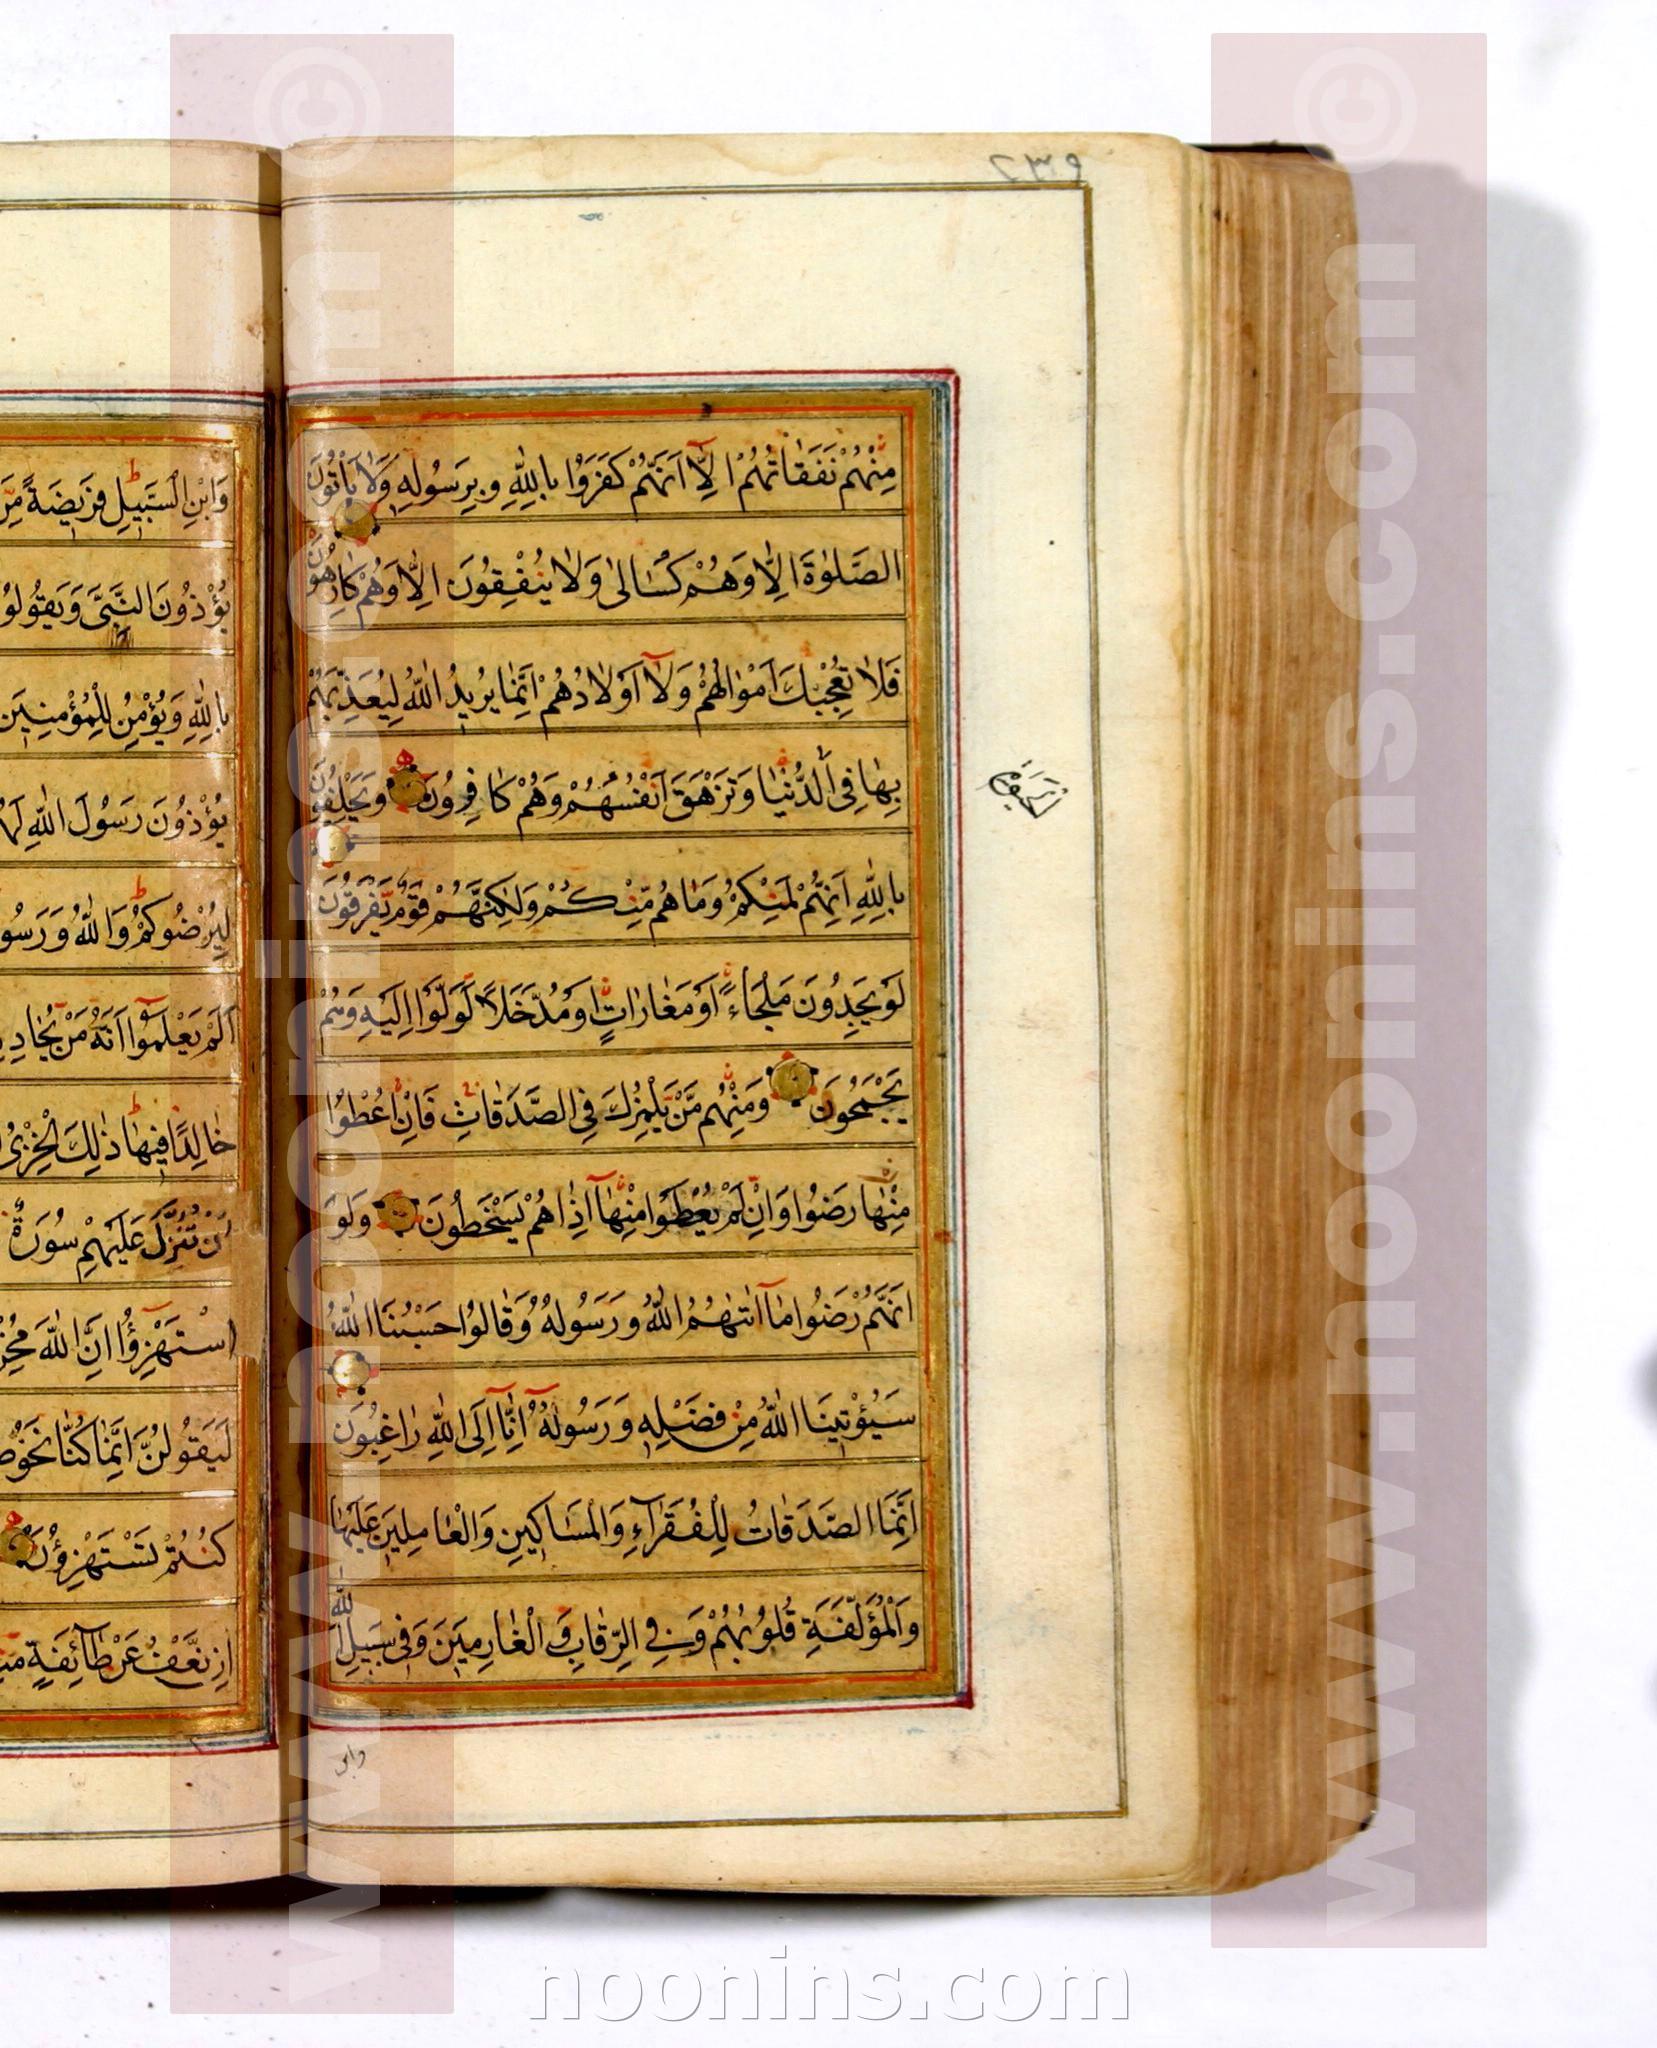 ٢٣٩
مِنْهُمْ نَفَقَاتُهُمْ اِلَّآ اَنَّهُمْ كَفَرُوا بِاللّٰهِ وَبِرَسُولِهِ وَلَا يَأْتُونَ
الصَّلٰوةَ اِلَّا وَهُمْ كُسَالٰى وَلَا يُنْفِقُونَ اِلَّا وَهُمْ كَارِهُونَ
فَلَا تُعْجِبْكَ اَمْوَالُهُمْ وَلَآ اَوْلَادُهُمْ اِنَّمَا يُرِيدُ اللّٰهُ لِيُعَذِّبَهُمْ
بِهَا فِى الدُّنْيَا وَتَزْهَقَ اَنْفُسُهُمْ وَهُمْ كَافِرُونَ وَيَحْلِفُونَ
الْحَيٰوةِ
بِاللّٰهِ اِنَّهُمْ لَمِنْكُمْ وَمَا هُمْ مِنْكُمْ وَلٰكِنَّهُمْ قَوْمٌ يَفْرَقُونَ
لَوْ يَجِدُونَ مَلْجَاءً اَوْ مَغَارَاتٍ اَوْ مُدَّخَلًا لَوَلَّوْا اِلَيْهِ وَهُمْ
يَجْمَحُونَ وَمِنْهُمْ مَنْ يَلْمِزُكَ فِى الصَّدَقَاتِ فَاِنْ اُعْطُوا
مِنْهَا رَضُوا وَاِنْ لَمْ يُعْطَوْا مِنْهَآ اِذَا هُمْ يَسْخَطُونَ وَلَوْ
اَنَّهُمْ رَضُوا مَآ اٰتٰهُمُ اللّٰهُ وَرَسُولُهُ وَقَالُوا حَسْبُنَا اللّٰهُ
سَيُؤْتِينَا اللّٰهُ مِنْ فَضْلِهِ وَرَسُولُهُ اِنَّآ اِلَى اللّٰهِ رَاغِبُونَ
اِنَّمَا الصَّدَقَاتُ لِلْفُقَرَآءِ وَالْمَسَاكِينِ وَالْعَامِلِينَ عَلَيْهَا
وَالْمُؤَلَّفَةِ قُلُوبُهُمْ وَفِى الرِّقَابِ وَالْغَارِمِينَ وَفِى سَبِيلِ اللّٰهِ
وابن
وَابْنِ السَّبِيلِ فَرِيضَةً مِنَ
يُؤْذُونَ النَّبِىَّ وَيَقُولُو
بِاللّٰهِ وَيُؤْمِنُ لِلْمُؤْمِنِينَ
يُؤْذُونَ رَسُولَ اللّٰهِ لَهُ
لِيُرْضُوكُمْ وَاللّٰهُ وَرَسُو
اَلَمْ يَعْلَمُوا اَنَّهُ مَنْ يُحَادِدِ
خَالِدًا فِيهَا ذٰلِكَ الْخِزْىُ
اَنْ تُنَزَّلَ عَلَيْهِمْ سُورَةٌ
اسْتَهْزِؤُا اِنَّ اللّٰهَ مُخْرِ
لَيَقُولُنَّ اِنَّمَا كُنَّا نَخُوضُ
كُنْتُمْ تَسْتَهْزِؤُنَ
اِنْ نَعْفُ عَنْ طَآئِفَةٍ مِنْ
www.noonins.com ©
www.noonins.com ©
noonins.com